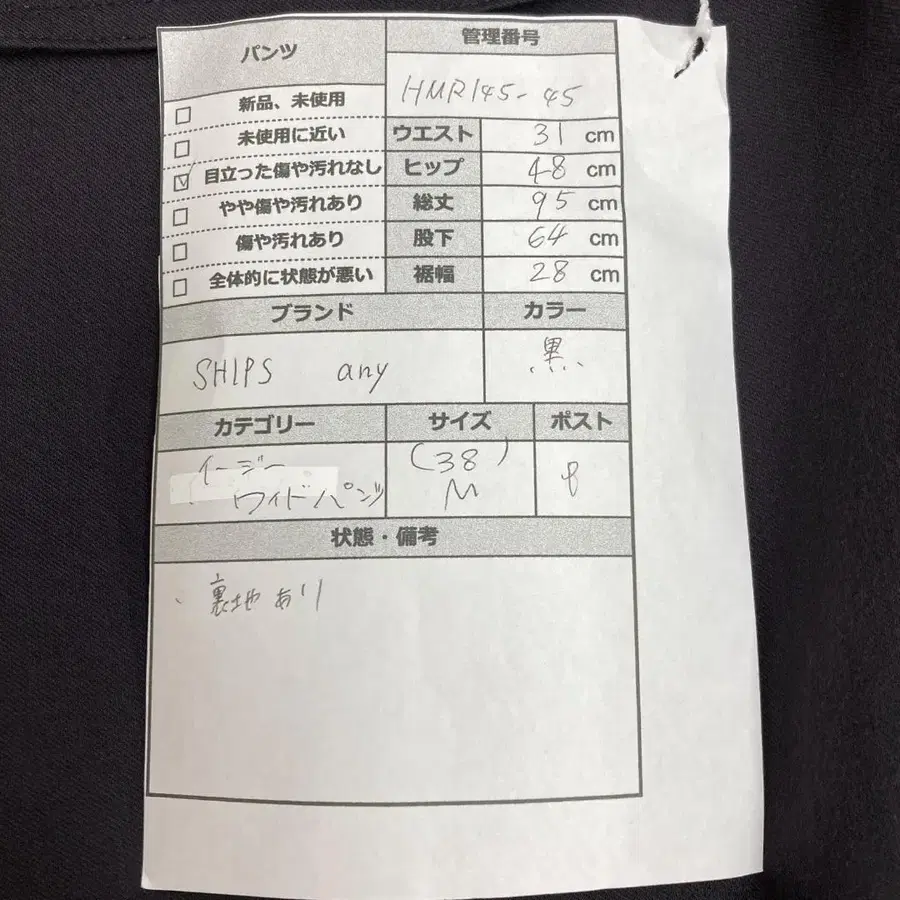 パンツ
管理番号
HMR145-45
新品、未使用
未使用に近い
目立った傷や汚れなし
やや傷や汚れあり
傷や汚れあり
全体的に状態が悪い
ウエスト 31 cm
ヒップ 48 cm
総丈 95 cm
股下 64 cm
裾幅 28 cm
ブランド
カラー
SHIPS any
黒
カテゴリー
サイズ
ポスト
イージー
ワイドパンツ
(38)
M
状態・備考
、裏地あり